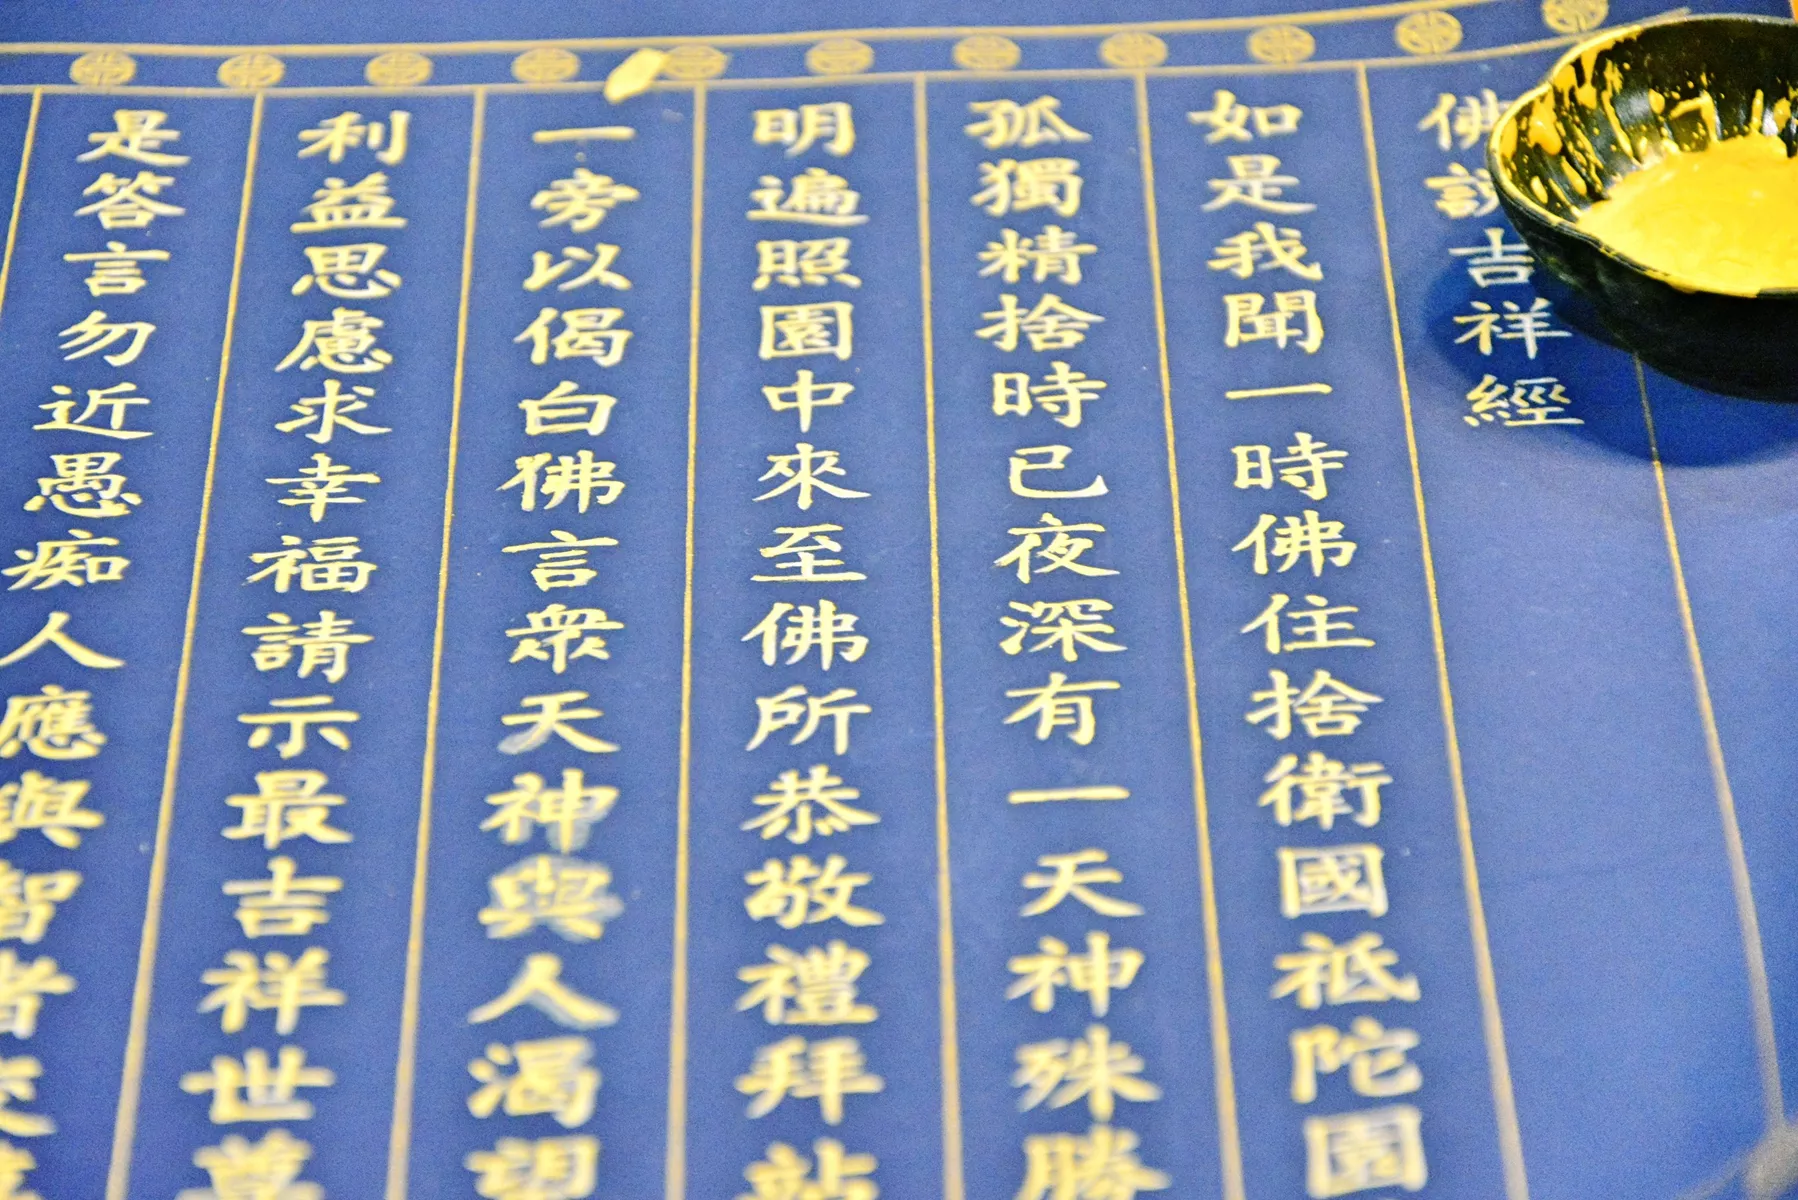 佛說吉祥經
如是我聞一時佛住捨衛國祇陀園
孤獨精捨時已夜深有一天神殊勝
明遍照園中來至佛所恭敬禮拜站
一旁以偈白佛言眾天神與人渴望
利益思慮求幸福請示最吉祥世尊
是答言勿近愚痴人應與智者交